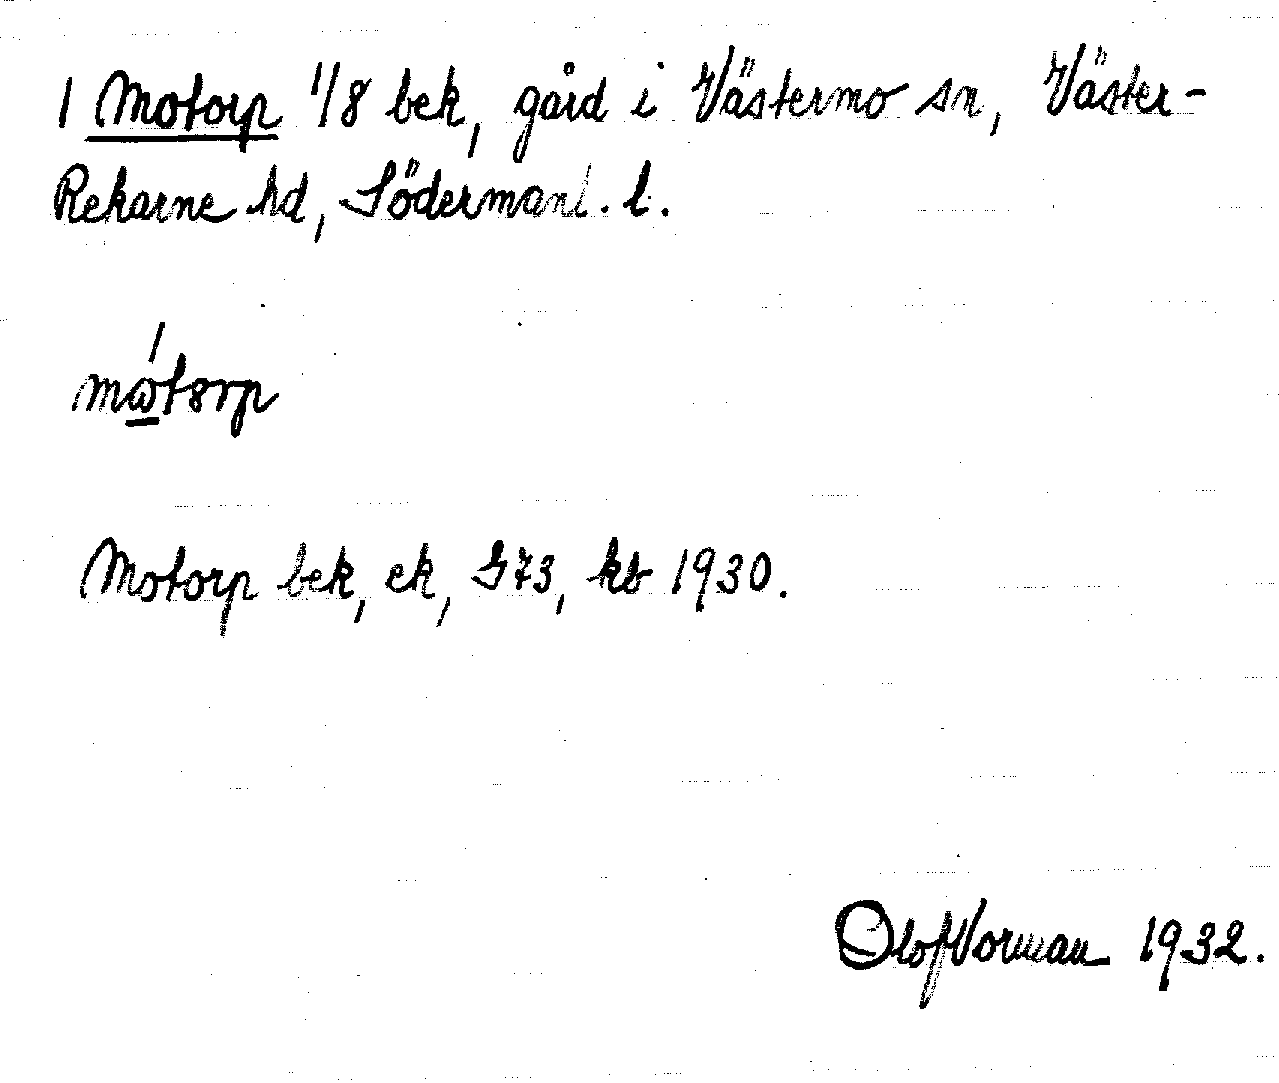 1 Motorp 1/8 bek, gård i Västermo sn, Väster-
Rekarne hd, Södermanl. l.
Motorp bek, ek, S73, kb 1930.
Olof Vorman 1932.